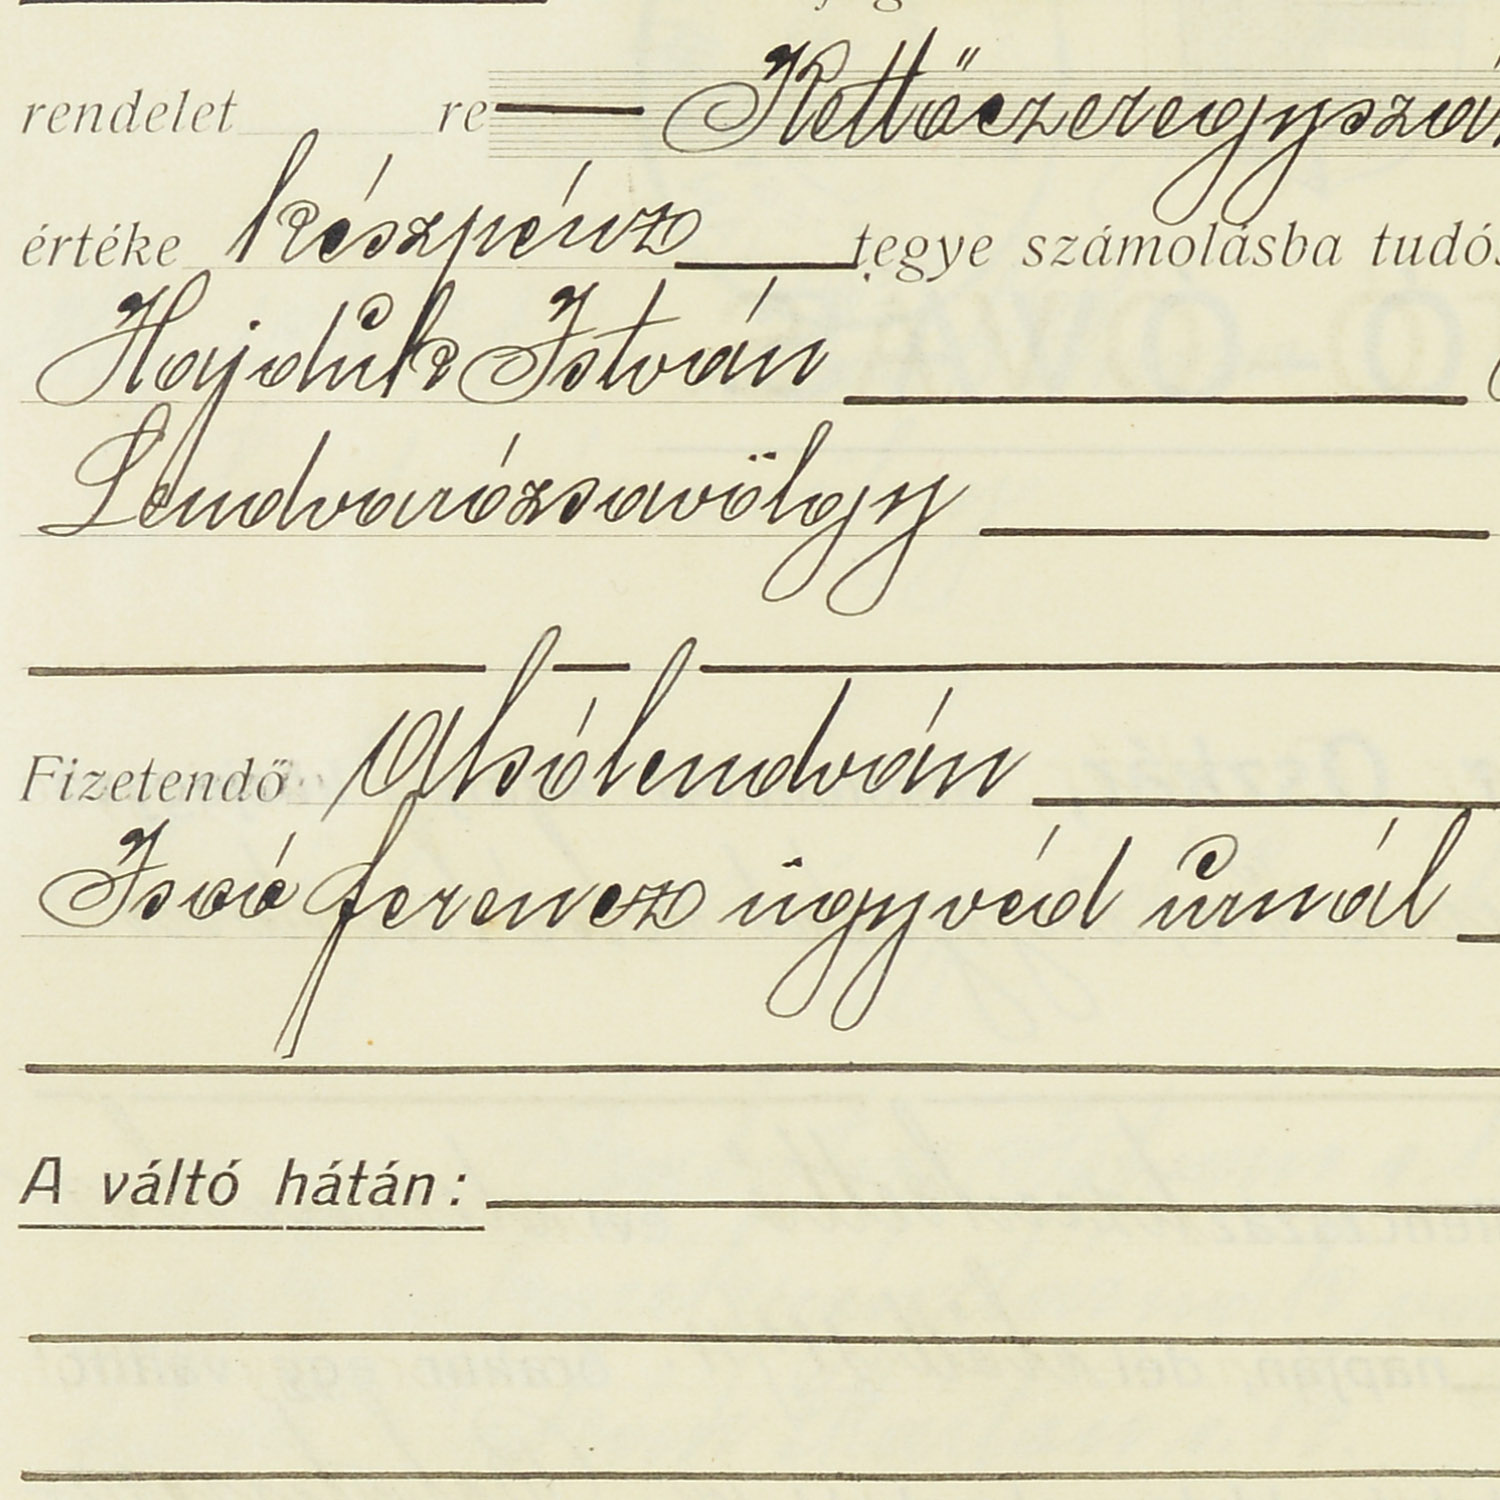 rendelet re Kettőezeregyszá
értéke készpénz tegye számolásba tudó
Hajduk István
Lendvarózsavölgy
Fizetendő Alsólendván
Isoó ferencz ügyvéd úrnál
A váltó hátán: